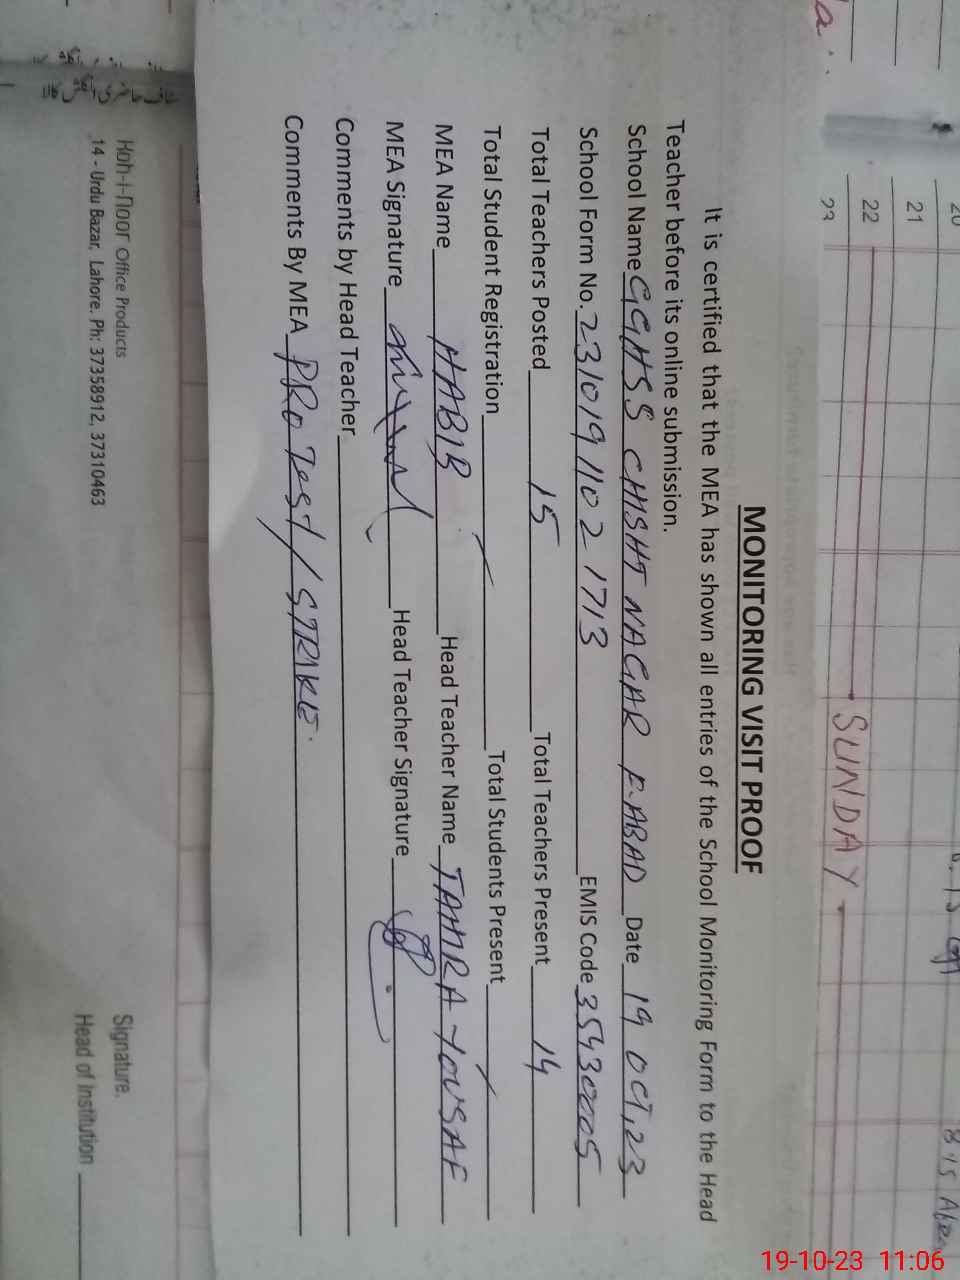 20
21
22
23
SUNDAY
MONITORING VISIT PROOF
It is certified that the MEA has shown all entries of the School Monitoring Form to the Head
Teacher before its online submission.
School Name GGHSS CHSHT NAGAR F.ABAD Date 19 OCT,23
School Form No. 231019 1102 1713 EMIS Code 35430005
Total Teachers Posted 15 Total Teachers Present 14
Total Student Registration / Total Students Present /
MEA Name HABIB Head Teacher Name TAHIRA YOUSAF
MEA Signature Head Teacher Signature
Comments by Head Teacher
Comments By MEA PROTEST / STRIKE.
Koh-i-noor Office Products
14 - Urdu Bazar, Lahore. Ph: 37358912, 37310463
Signature.
Head of Institution
19-10-23 11:06